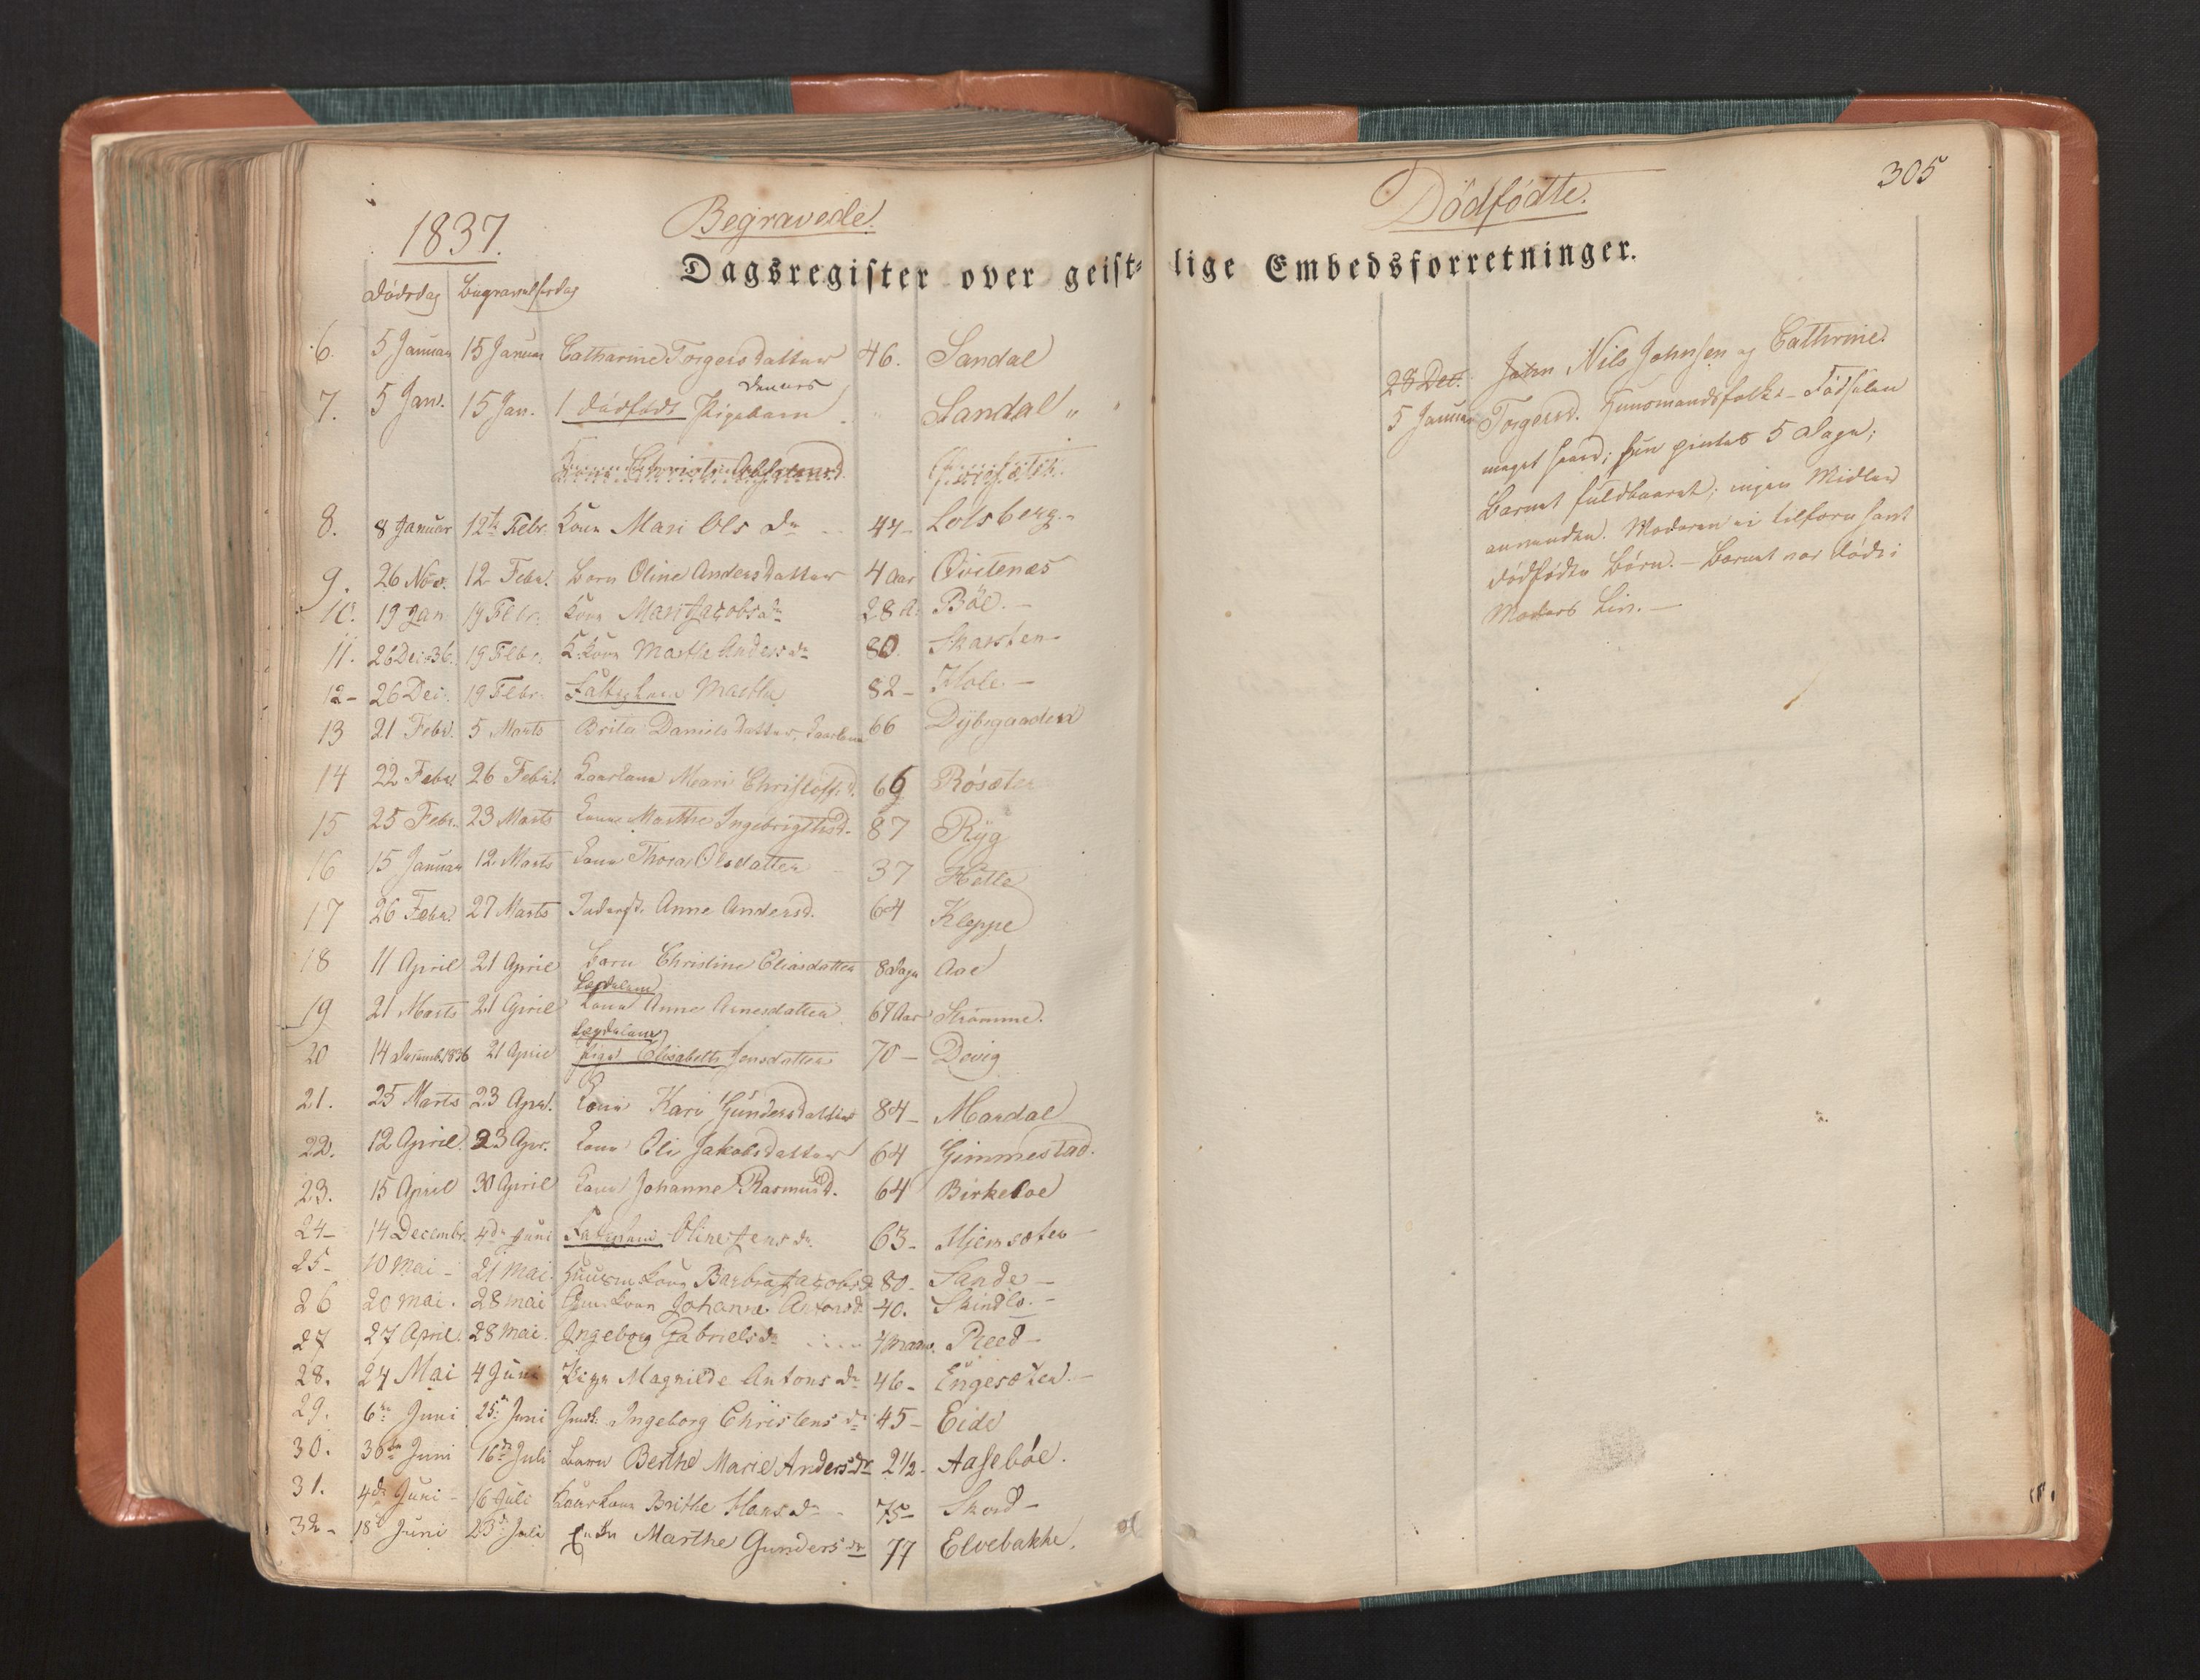 1837.
Begravede.
Dagsregister over geist-
Dødsdag Begravelsesdag
6. 5 Januar 15 Januar Catharine Torgersdatter 46. Sandal
dennes
7. 5 Jan. 15 Jan. 1 dødfødt Pigebarn " Sandal "
8. 8 Januar 12te Febr. Kone Mari Ols dr 44 - Lotsberg. -
9. 26 Nov. 12 Febr. barn Oline Andersdatter 4 aar Qvitenæs
10. 19 Jan 19 Febr. Kone Mari Jacobsdr 28 A. Böe. -
11. 26 Dec 36. 19 Febr. K. Kone Marthe Andersdr 80. Skarsten -
12 - 26 Dec. 19 Febr. Fattiglem Marthe 82 - Hole -
13 21 Febr. 5 Marts Brite Daniels datter, Kaarkone 66 Dybegaarden
14 22 Febr. 26 Febr. Kaarkone Mari Christoffd. 66 Rösæter
15 25 Febr. 23 Marts Kone Marthe Ingebrigtsd. 87 Ryg
16 15 Januar 12 Marts Kone Thora Olsdatter - 37 Hetle
17 26 Febr. 27 Marts Inderst. Anne Andersd. 64 Kleppe
18 11 April 21 April barn Christine Eliasdatter 8 dage Aae
Lægdslem
19 21 Marts 21 April Kone Anne Arnesdatter 67 Aar Strömme.
Lægdslem
20 14 Decemb. 1836 21 April Pige Elisabeth Jensdatter 70 - Devig
21. 25 Marts 23 Apr. Kone Kari Gundersdatter 84 - Mardal
22. 12 April 23 Apr. Kone Oli Jakobsdatter 64 Gimmestad.
23. 15 April 30 April Kone Johanne Rasmusd. 64 Birkeloe
24 - 14 Decembr. 4de Juni Fattiglem Oline Jens dr. 63 - Hjemsæter -
25 - 10 Mai - 21 Mai. Huusm. Kone Barbra Jacobsd. 80 - Sande -
26 20 Mai. 28 Mai Kone Johanne Antonsd. 40. Skindlo. -
27 27 April. 28 Mai. Ingeborg Gabrielsdr 4 Maan. Reed -
28. 24 Mai 4 Juni Pige Magnilde Antons dr 46 - Engesæter. -
29. 6te Juni 25. Juni Gmdk. Ingeborg Christens dr 45 - Eide
30. 30te Juni 16de Juli barn Berthe Marie Anders dr 2 1/2. Aasebøe.
31. 4de Juni - 16 Juli Kaarkone Brithe Hans dr - 75 - Skord -
32 - 18de Juni 23de Juli Enke Marthe Gunders dr 77 Elvebakke.
305
Dödfødte.
lige Embedsforretninger.
28 Dec. John Nils Johnsen og Cathrine
5 Januar Torgersd. Huusmandsfolk. - Fødselen
meget haard; hun pintes 5 Dage;
Barnet fuldbaaret; ingen Midler
anvendte. Moderen ei tilforn havt
dödfødte Börn. - Barnet var död i
Moders Liv. -